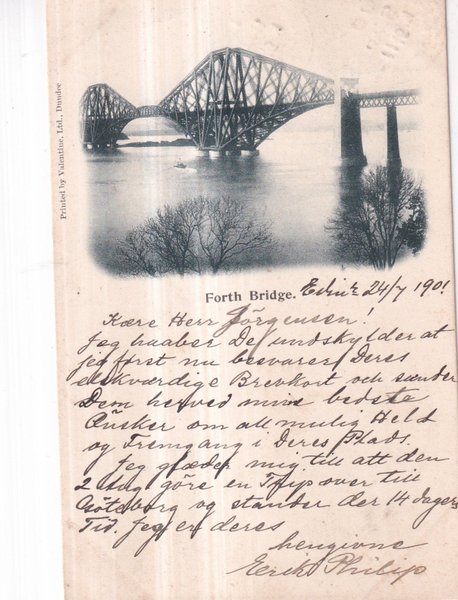 Printed by Valentine, Ltd., Dundee
Forth Bridge. Edinr 24/7 1901
Kære Herr Jörgensen!
Jeg haaber De undskylder at
jeg først nu besvarer Deres
elskværdige Brevkort och sender
Dem herved mine bedste
Ønsker om all mulig Held
og Fremgang i Deres Plads.
Jeg glæder mig till att den
2 Aug göre en Tripp over till
Göteborg og stander der 14 dagers
Tid. Jeg er deres
hengivne
Erik Philip